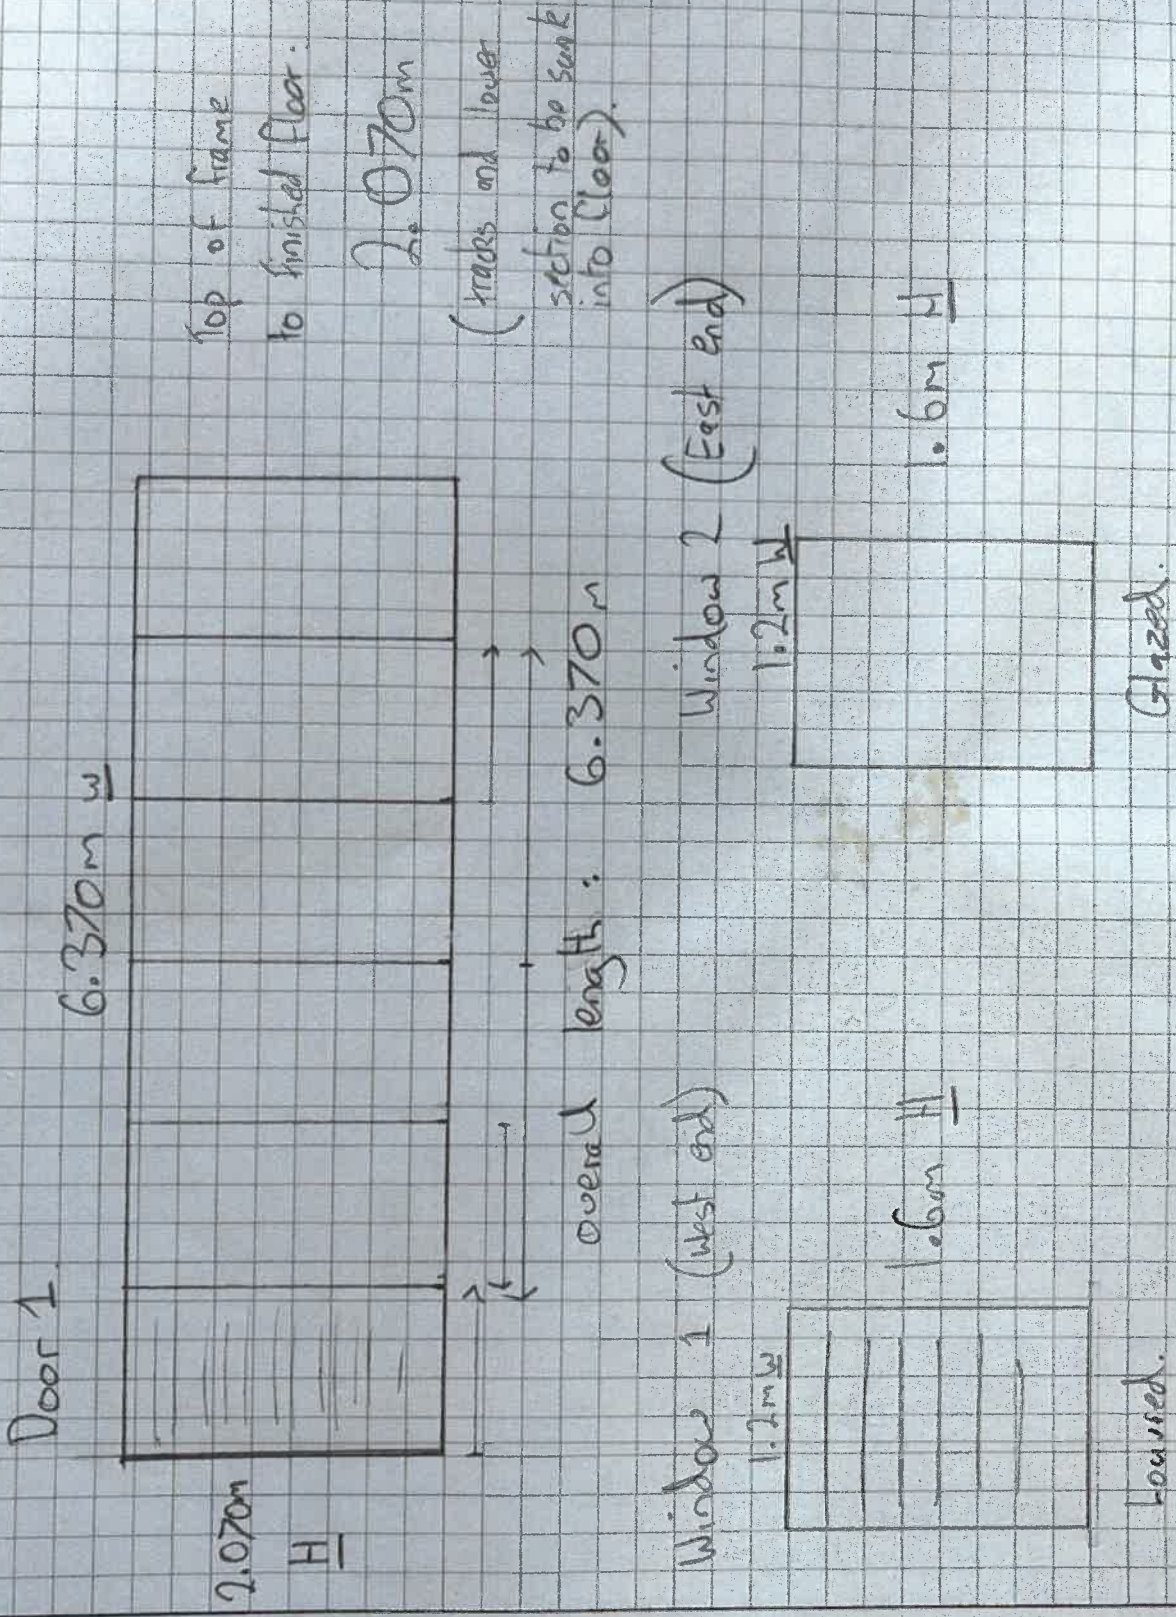 Door 1
6.370m W
2.070m
H
Top of frame
to finished floor.
2.070m
(tracks and lower
section to be sunk
into floor).
overall length: 6.370m
Window 1 (West end)
1.2m W
1.6m H
Louvred.
Window 2 (East end)
1.2m W
1.6m H
Glazed.